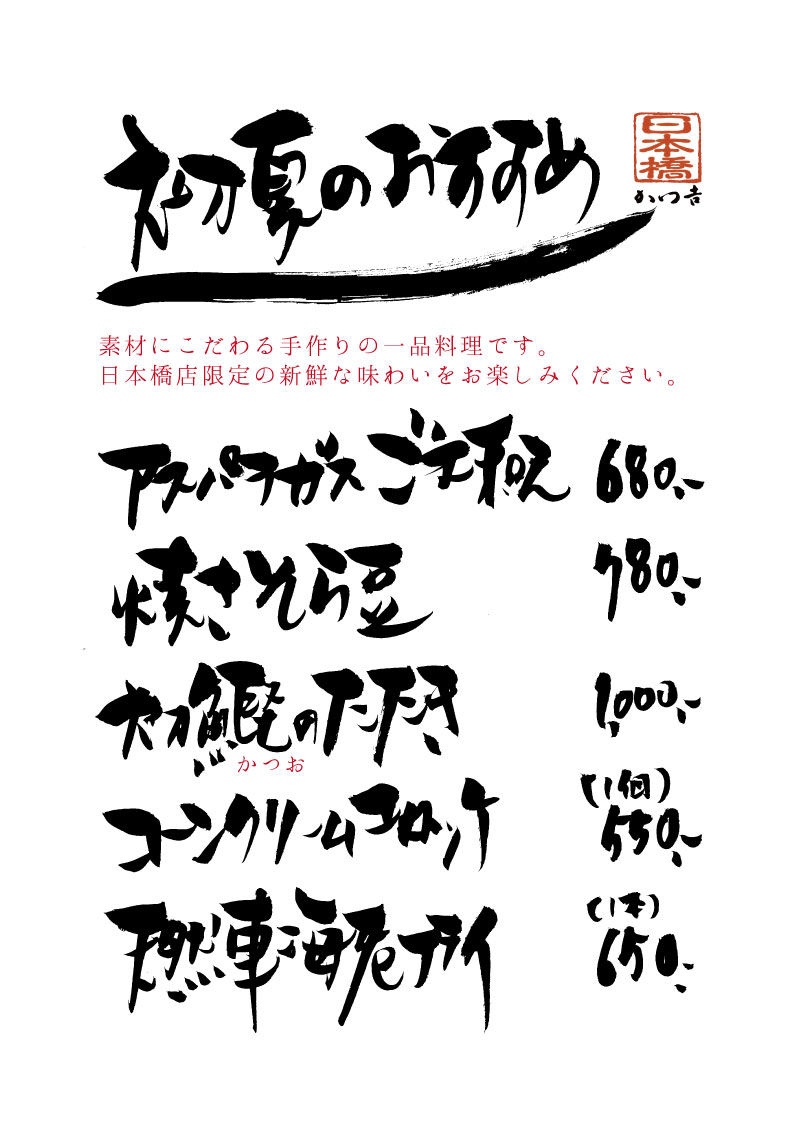 初夏のおすすめ
日本橋
かつ吉
素材にこだわる手作りの一品料理です。
日本橋店限定の新鮮な味わいをお楽しみください。
アスパラガスごま和え 680.-
焼きそら豆 780.-
初鰹のたたき 1,000.-
かつお
コーンクリームコロッケ (1個) 550.-
天然車海老フライ (1本) 650.-